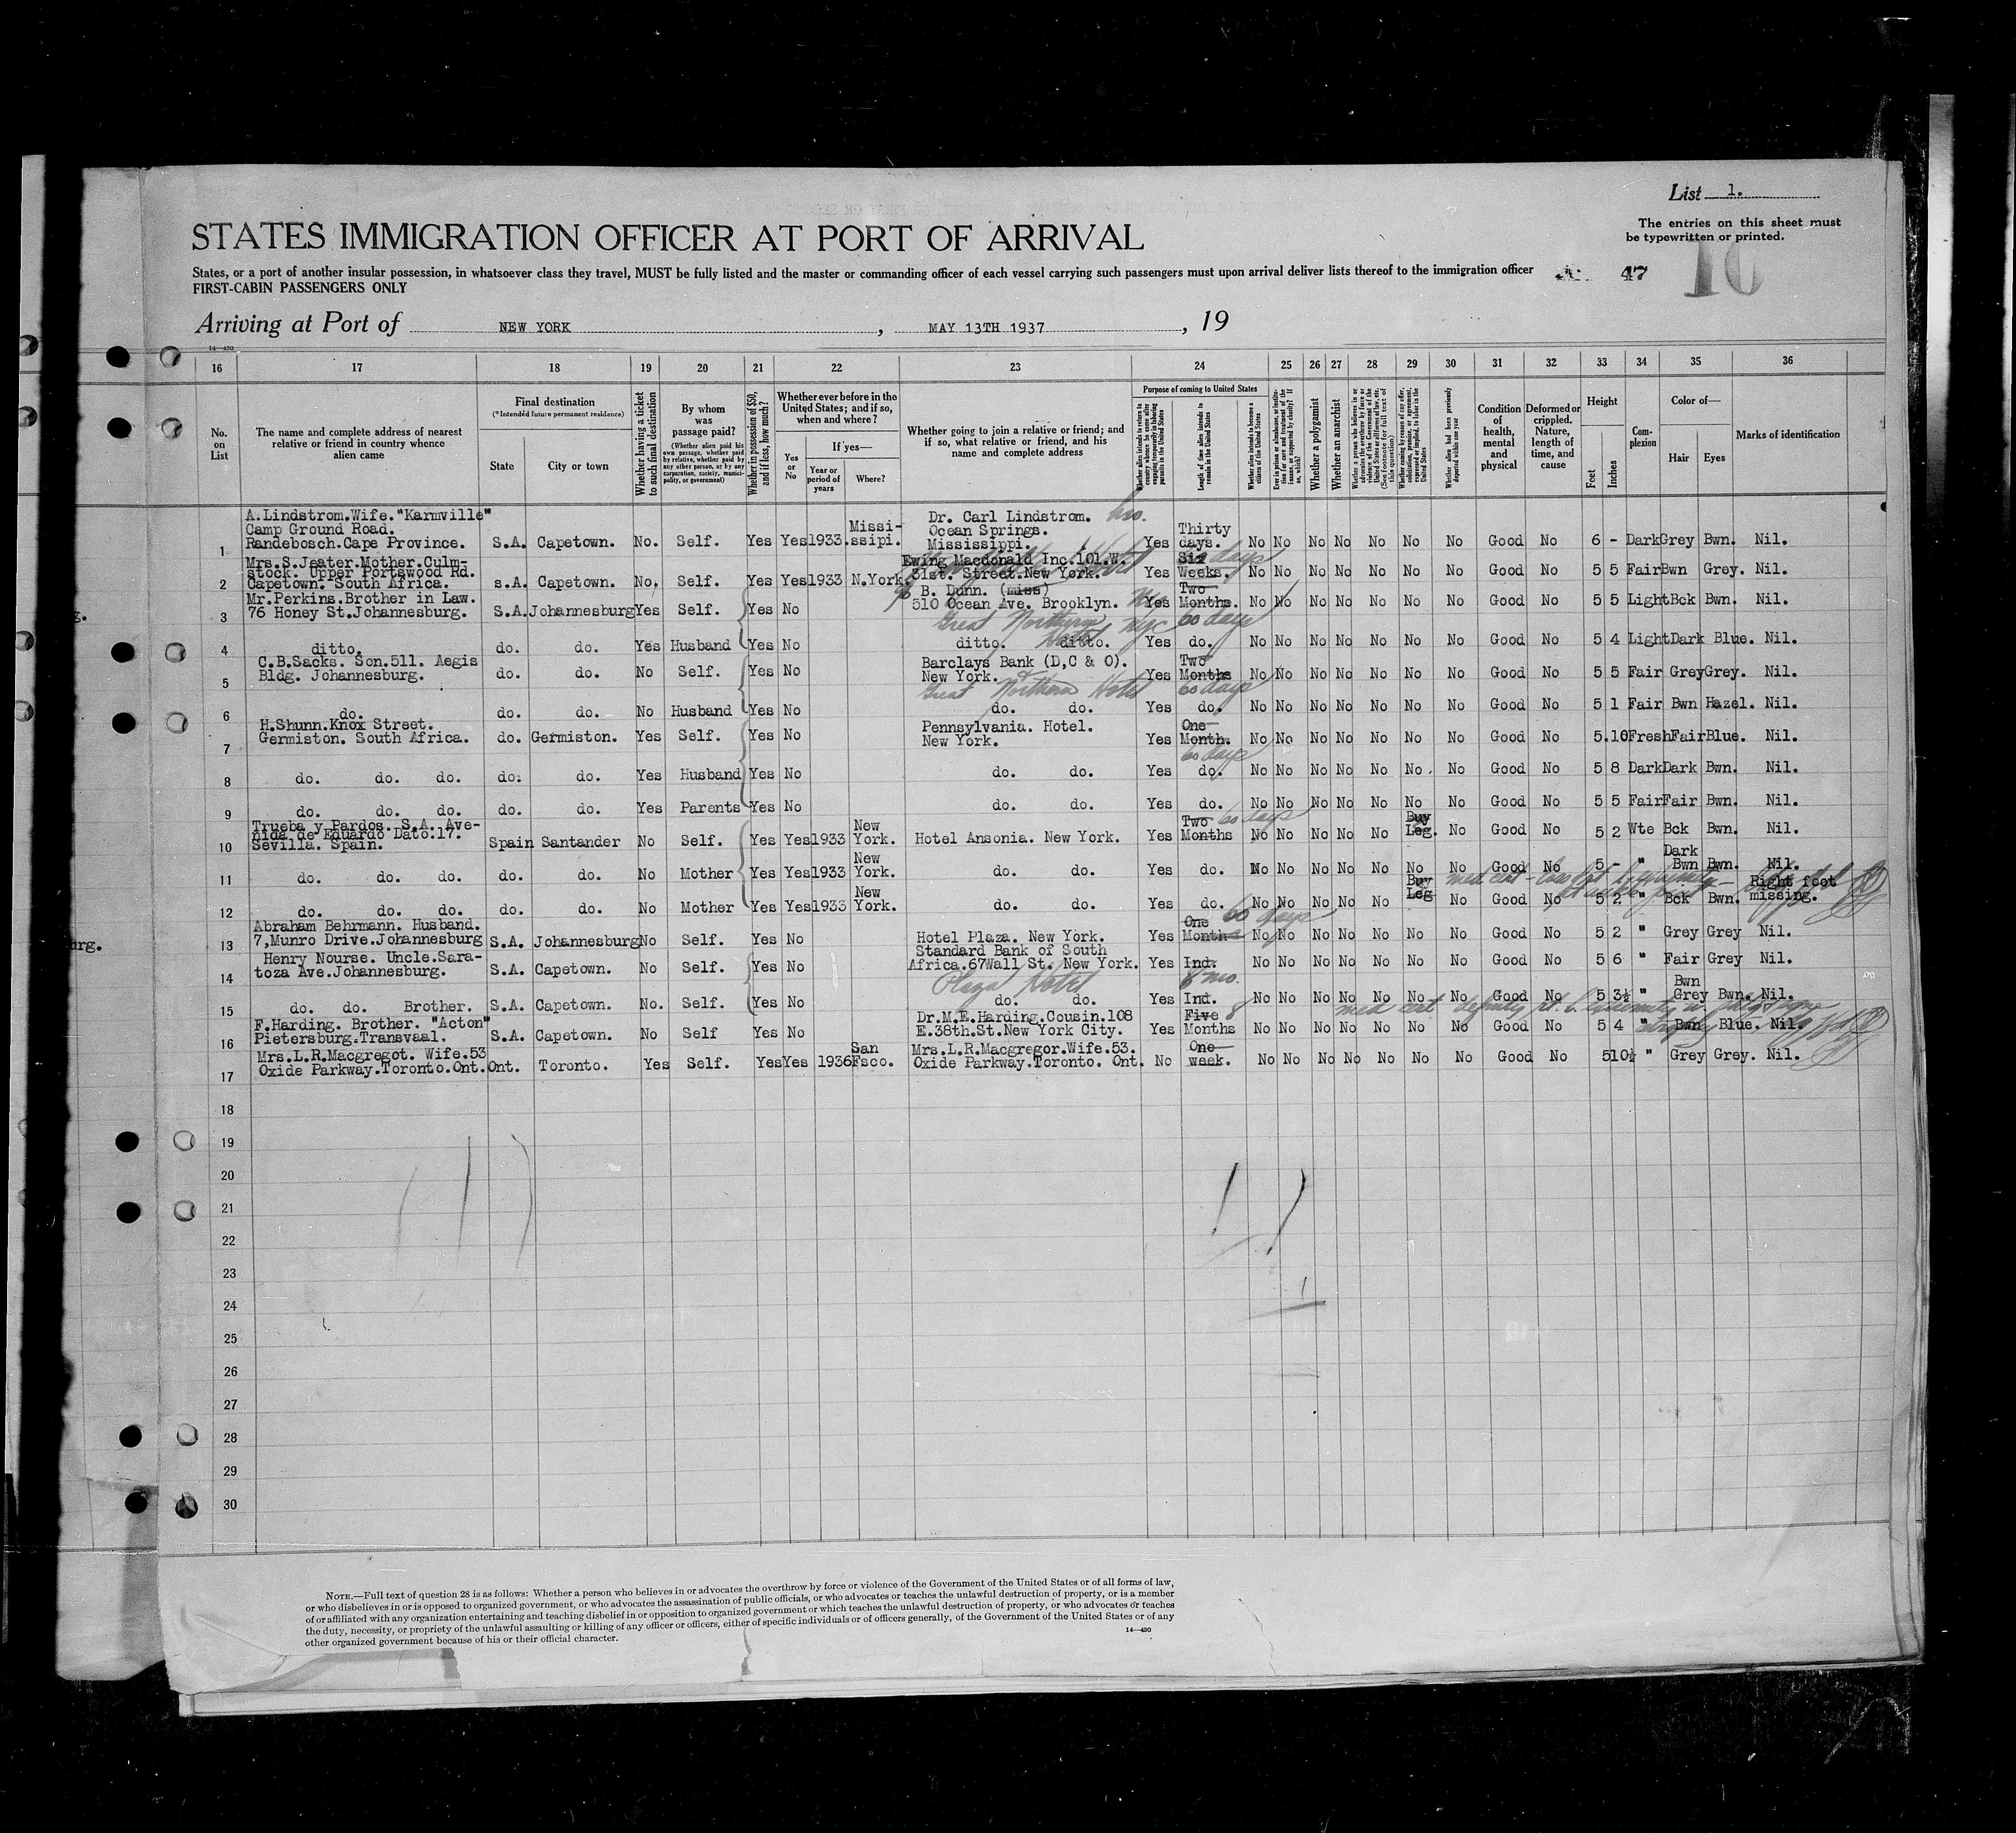 List 1.
The entries on this sheet must
be typewritten or printed.
STATES IMMIGRATION OFFICER AT PORT OF ARRIVAL
States, or a port of another insular possession, in whatsoever class they travel, MUST be fully listed and the master or commanding officer of each vessel carrying such passengers must upon arrival deliver lists thereof to the immigration officer
47 10
FIRST-CABIN PASSENGERS ONLY
Arriving at Port of NEW YORK, MAY 13TH 1937, 19
14—430
16 17 18 19 20 21 22 23 24 25 26 27 28 29 30 31 32 33 34 35 36
No. on List
The name and complete address of nearest relative or friend in country whence alien came
Final destination
(*Intended future permanent residence)
State
City or town
Whether having a ticket to such final destination
By whom was passage paid?
(Whether alien paid his own passage, whether paid by relative, whether paid by any other person, or by any corporation, society, municipality, or government)
Whether in possession of $50, and if less, how much?
Whether ever before in the United States; and if so, when and where?
If yes—
Yes or No
Year or period of years
Where?
Whether going to join a relative or friend; and if so, what relative or friend, and his name and complete address
Purpose of coming to United States
Whether alien intends to return to country whence he came after engaging temporarily in laboring pursuits in the United States
Length of time alien intends to remain in the United States
Whether alien intends to become a citizen of the United States
Ever in prison or almshouse, or institution for care and treatment of the insane, or supported by charity? If so, which?
Whether a polygamist
Whether an anarchist
Whether a person who believes in or advocates the overthrow by force or violence of the Government of the United States or all forms of law, etc. (See footnote for full text of this question)
Whether coming by reason of any offer, solicitation, promise, or agreement, expressed or implied, to labor in the United States
Whether alien had been previously deported within one year
Condition of health, mental and physical
Deformed or crippled. Nature, length of time, and cause
Height
Feet
Inches
Complexion
Color of—
Hair
Eyes
Marks of identification
A.Lindstrom.Wife."Karmville"
Camp Ground Road.
1 Randebosch.Cape Province. S.A. Capetown. No. Self. Yes Yes 1933. Missi-ssipi. Dr. Carl Lindstrom. bro. Ocean Springs. Mississippi. Yes Thirty days. No No No No No No No Good No 6 - Dark Grey Bwn. Nil.
Mrs.S.Jeater.Mother.Culm-
stock. Upper Portswood Rd.
2 Capetown. South Africa. S.A. Capetown. No. Self. Yes Yes 1933 N.York. Ewing Macdonald Inc.101.W. 31st. Street.New York. Yes Six Weeks. days No No No No No No No Good No 5 5 Fair Bwn Grey. Nil.
Mr.Perkins.Brother in Law.
3 76 Honey St.Johannesburg. S.A. Johannesburg Yes Self. Yes No B. Dunn. (miss) 510 Ocean Ave. Brooklyn. Yes Two Months. No No No No No No No Good No 5 5 Light Bck Bwn. Nil.
Great Northern Hotel NYC 60 days
4 ditto. do. do. Yes Husband Yes No ditto. ditto. Yes do. No No No No No No No Good No 5 4 Light Dark Blue. Nil.
C.B.Sacks. Son.511. Aegis
5 Bldg. Johannesburg. do. do. No Self. Yes No Barclays Bank (D,C & O). New York. Yes Two Months No No No No No No No Good No 5 5 Fair Grey Grey. Nil.
Great Northern Hotel 60 days
6 do. do. do. No Husband Yes No do. do. Yes do. No No No No No No No Good No 5 1 Fair Bwn Hazel. Nil.
H.Shunn.Knox Street.
7 Germiston. South Africa. do. Germiston. Yes Self. Yes No Pennsylvania. Hotel. New York. Yes One Month. 60 days No No No No No No No Good No 5.10 Fresh Fair Blue. Nil.
8 do. do. do. do. do. Yes Husband Yes No do. do. Yes do. No No No No No No No Good No 5 8 Dark Dark Bwn. Nil.
9 do. do. do. do. do. Yes Parents Yes No do. do. Yes do. No No No No No No No Good No 5 5 Fair Fair Bwn. Nil.
Trueba y Pardos. S.A. Ave-
nida de Eduardo Dato.17.
10 Sevilla. Spain. Spain Santander No Self. Yes Yes 1933 New York. Hotel Ansonia. New York. Yes Two Months 60 days No No No No No Buy Leg. No Good No 5 2 Wte Bck Bwn. Nil.
11 do. do. do. do. do. No Mother Yes Yes 1933 New York. do. do. Yes do. No No No No No No No Good No 5 - " Dark Bwn Bwn. Nil.
12 do. do. do. do. do. No Mother Yes Yes 1933 New York. do. do. Yes do. No No No No No Buy Leg No Good No 5 2 " Bck Bwn. Right foot missing.
Abraham Behrmann. Husband.
13 7,Munro Drive.Johannesburg S.A. Johannesburg No Self. Yes No Hotel Plaza. New York. Yes One Month 60 days No No No No No No No Good No 5 2 " Grey Grey Nil.
Henry Nourse. Uncle.Sara-
14 toza Ave.Johannesburg. S.A. Capetown. No Self. Yes No Standard Bank of South Africa.67Wall St. New York. Yes Ind. No No No No No No No Good No 5 6 " Fair Grey Nil.
Plaza Hotel 8 mo.
15 do. do. Brother. S.A. Capetown. No. Self. Yes No do. do. Yes Ind. No No No No No No No Good No 5 3½ " Bwn Grey Bwn. Nil.
F.Harding. Brother. "Acton"
16 Pietersburg.Transvaal. S.A. Capetown. No Self Yes No Dr.M.E.Harding.Cousin.108 E.38th.St.New York City. Yes Five 8 Months No No No No No No No Good No 5 4 " Bwn Blue. Nil.
Mrs.L.R.Macgregot. Wife.53
17 Oxide Parkway.Toronto.Ont. Ont. Toronto. Yes Self. Yes Yes 1936 San Fsco. Mrs.L.R.Macgregor.Wife.53. Oxide Parkway.Toronto. Ont. No One week. No No No No No No No Good No 5 10½ " Grey Grey. Nil.
18
19
20
21
22
23
24
25
26
27
28
29
30
NOTE.—Full text of question 28 is as follows: Whether a person who believes in or advocates the overthrow by force or violence of the Government of the United States or of all forms of law,
or who disbelieves in or is opposed to organized government, or who advocates the assassination of public officials, or who advocates or teaches the unlawful destruction of property, or is a member
of or affiliated with any organization entertaining and teaching disbelief in or opposition to organized government or which teaches the unlawful destruction of property, or who advocates or teaches
the duty, necessity, or propriety of the unlawful assaulting or killing of any officer or officers, either of specific individuals or of officers generally, of the Government of the United States or of any
other organized government because of his or their official character.
14—430